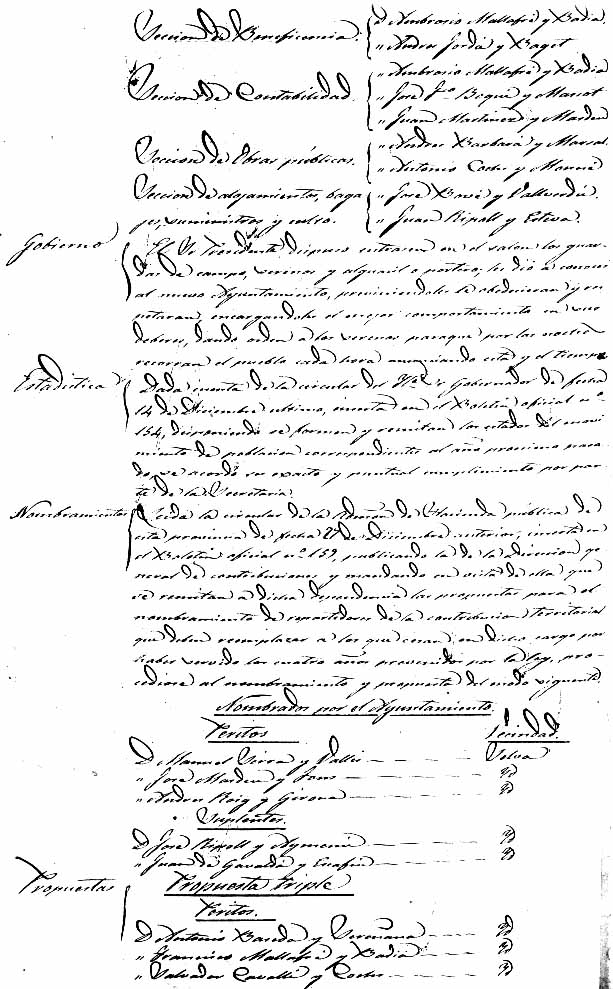 Seccion de Beneficencia. D Ambrosio Mallafré y Badia.
" Andres Jordá y Baget
" Ambrosio Mallafré y Badia
Seccion de Contabilidad. " José Fco Boqué y Marcat
" Juan Martinez y Marden
" Andres Barbará y Marsal.
Seccion de Obras públicas. " Antonio Coche y
Seccion de alojamientos, baga " José Bové y Vallverdú.
jes, suministros y culto. " Juan Ripoll y Esteva.
Gobierno El Sr Presidente dispuso entrasen en el salon los guar
das de campo, serenos y alguacil o portero, les dió a conocer
al nuevo Ayuntamiento, previniendoles le obedecieran y res
petaran, encargandoles el mejor comportamiento en sus
deberes, dando orden a los serenos paraque por las noches
recorran el pueblo cada hora anunciando esta y el tiempo.
Estadistica Dada cuenta de la circular del Sr Gobernador de fecha
14 de Diciembre ultimo, inserta en el Boletin oficial nº
154, disponiendo se formen y remitan los estados del movi
miento de poblacion correspondientes al año proximo pasa
do, se acordó su exacto y puntual cumplimiento por par
te de la Secretaria.
Nombramientos Leida la circular de la Admon de Hacienda pública de
esta provincia de fecha 27 de Diciembre anterior, inserta en
el Boletin oficial nº 159, publicando la de la direccion ge
neral de contribuciones y mandando en vista de ella que
se remitan a dicha dependencia las propuestas para el
nombramiento de repartidores de la contribucion territorial
que deben reemplazar a los que cesan en dicho cargo por
haber servido los cuatro años prevenidos por la ley, pro
cediose al nombramiento y propuesta del modo siguiente.
Nombrados por el Ayuntamiento.
Peritos Vecindad.
D Manuel y Vallés — — — — Selva
" José Marden y — — — — Id
" Andres Roig y Girona — — — — Id
Suplentes.
D José Ripoll y Aymemi — — — — Id
" Juan de Gavaldá y — — — — Id
Propuestas Propuesta triple
Peritos.
D Antonio Baseda y — — — — Id
" Francisco Mallafré y Badia — — — — Id
" Salvador Cavallé y Coche — — — — Id